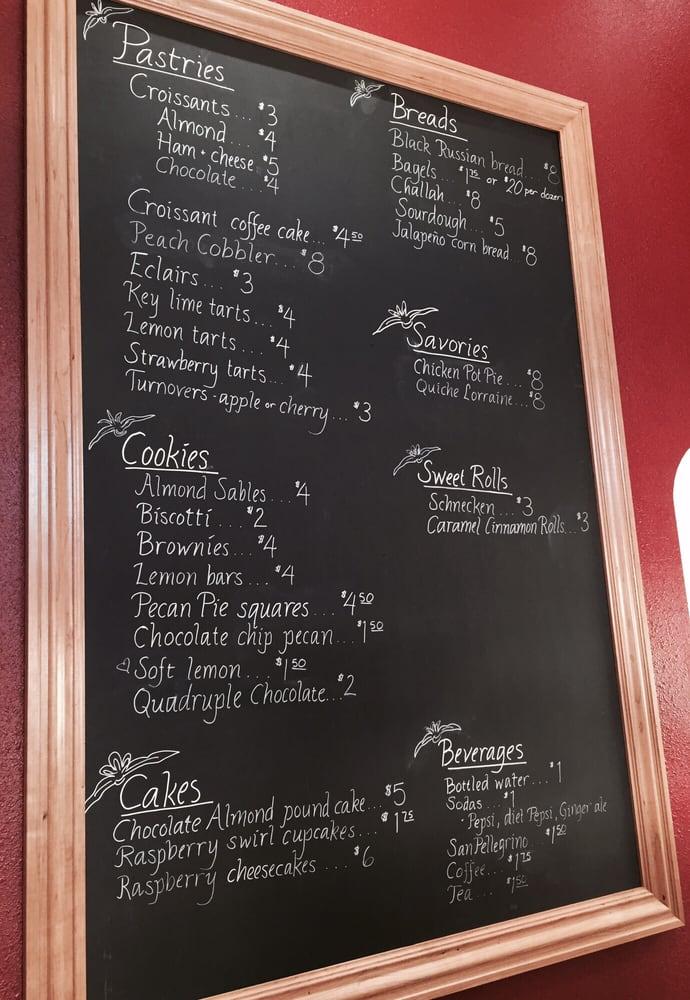 Pastries
Croissants... $3
Almond... $4
Ham + cheese $5
Chocolate... $4
Croissant coffee cake... $4 50
Peach Cobbler... $8
Eclairs... $3
Key lime tarts... $4
Lemon tarts... $4
Strawberry tarts... $4
Turnovers - apple or cherry... $3
Cookies
Almond Sables... $4
Biscotti... $2
Brownies... $4
Lemon bars... $4
Pecan Pie squares... $4 50
Chocolate chip pecan... $1 50
Soft lemon... $1 50
Quadruple Chocolate... $2
Cakes
Chocolate Almond pound cake... $5
Raspberry swirl cupcakes... $1 75
Raspberry cheesecakes.... $6
Breads
Black Russian bread... $8
Bagels... $1 75 or $20 per dozen
Challah... $8
Sourdough... $5
Jalapeño corn bread... $8
Savories
Chicken Pot Pie... $8
Quiche Lorraine... $8
Sweet Rolls
Schnecken... $3
Caramel Cinnamon Rolls... $3
Beverages
Bottled water... $1
Sodas... $1
Pepsi, diet Pepsi, Ginger ale
San Pellegrino... $1 50
Coffee... $1 75
Tea... $1 50